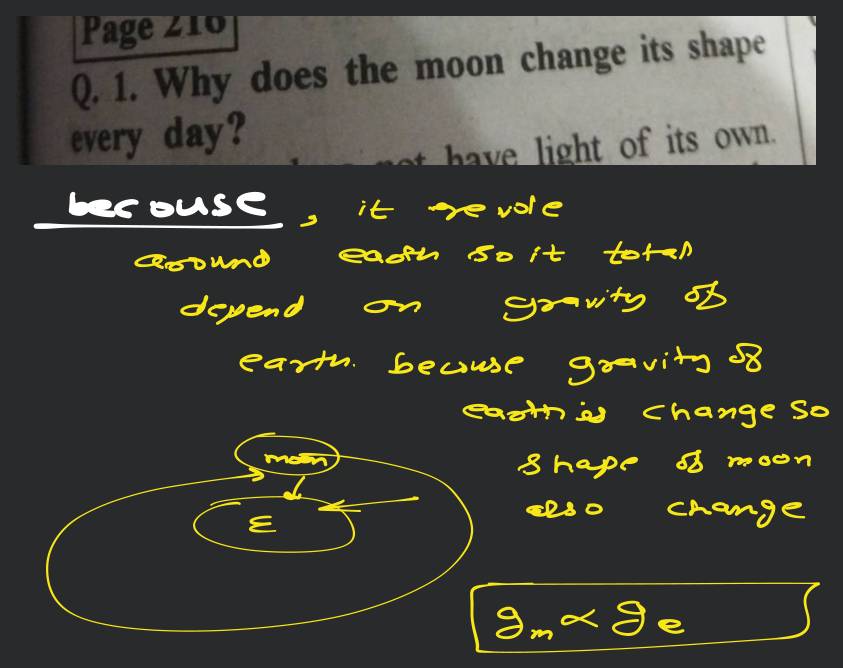 Page 216
Q. 1. Why does the moon change its shape
every day?
not have light of its own.
becouse, it revole
around earth so it total
depend on gravity of
earth. becouse gravity of
earth is change so
shape of moon
also change
moon
E
gm ∝ ge